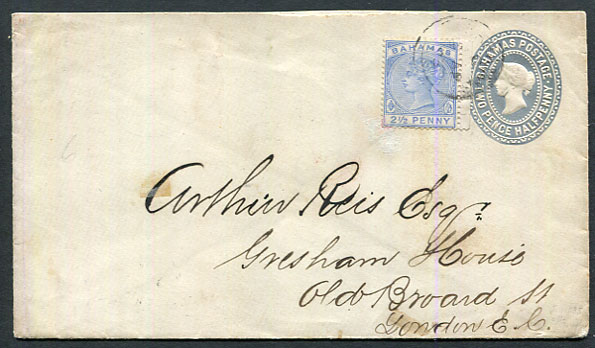 BAHAMAS
2½ PENNY
BAHAMAS POSTAGE
TWO PENCE HALFPENNY
Arthur Reis Esqr
Gresham House
Old Broard St
London E.C.